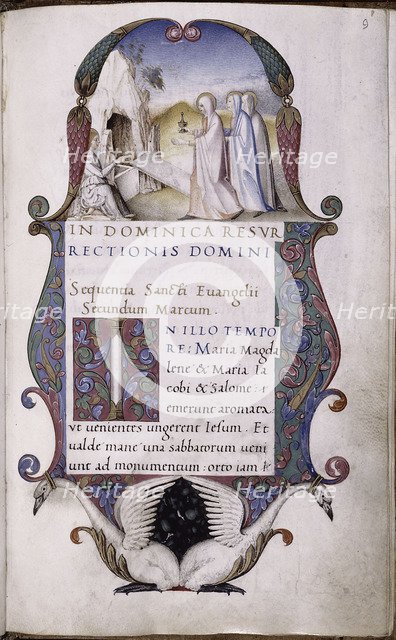 9
IN DOMINICA RESVR
RECTIONIS DOMINI
Sequentia Sancti Euangelii
Secundum Marcum.
IN ILLO TEMPO
RE: Maria Magda
lene & Maria Ia
cobi & Salome
emerunt aromata
vt uenientes ungerent Iesum. Et
ualde mane una sabbatorum ueni
unt ad monumentum: orto iam
Heritage
Heritage
Heritage
Heritage
Heritage
Heritage
Heritage
Heritage